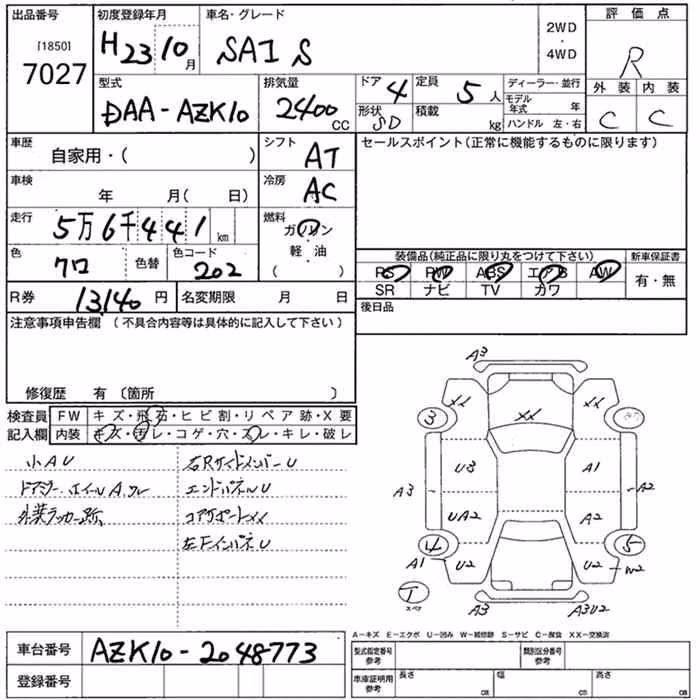 出品番号
[1850]
7027
初度登録年月
H23 10月
車名・グレード
SAI S
2WD
・
4WD
評価点
R
外装 内装
C C
型式
DAA-AZK10
排気量
2400 CC
ドア 4
定員 5人
形状 SD
積載 kg
ディーラー・並行
モデル年式 年
ハンドル 左・右
車歴
自家用・( )
シフト
AT
セールスポイント(正常に機能するものに限ります)
車検
年 月( 日)
冷房
AC
走行
5万6千441 km
燃料
ガソリン
軽・油
( )
色
クロ
色替
色コード
202
装備品(純正品に限り丸をつけて下さい)
PS PW ABS エアB AW
SR ナビ TV カワ
新車保証書
有・無
R券 13140円
名変期限 月 日
後日品
注意事項申告欄 (不具合内容等は具体的に記入して下さい)
修復歴 有 〔箇所 〕
検査員
記入欄
FW キズ・飛石・ヒビ割・リペア跡・X要
内装 キズ・汚レ・コゲ・穴・スレ・キレ・破レ
小AU
ドアミラー、ホイールA、スレ
外装ラッカー跡
右RサイドメンバーU
エンドパネルU
コアサポートXX
左FインパネU
A3
XX
XX
XX
3
U3
A1
A3
A2
UA2
A2
4
5
A1
U2
U2
W2
T
スペア
A3
A3U2
A-キズ E-エクボ U-凹み W-補修跡 S-サビ C-腐食 XX-交換済
車台番号
AZK10-2048773
登録番号
型式指定番号
参考
類別区分番号
参考
車庫証明用
参考
長さ cm
幅 cm
高さ cm